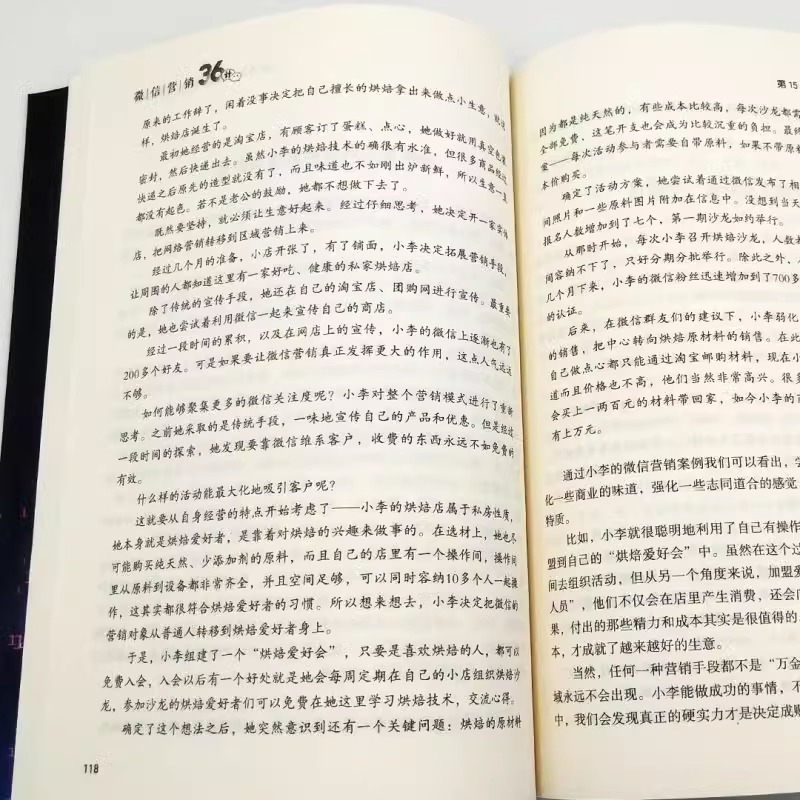 微|信|营|销 36计
原来的工作辞了，闲着没事决定把自己擅长的烘焙拿出来做点小生意，就这
样，烘焙店诞生了。
最初她经营的是淘宝店，有顾客订了蛋糕、点心，她做好就用真空包装
密封，然后快递出去。虽然小李的烘焙技术的确很有水准，但很多商品经过
快递之后原先的造型就没有了，而且味道也不如刚出炉新鲜，所以生意一直
都没有起色。若不是老公的鼓励，她都不想做下去了。
既然要坚持，就必须让生意好起来。经过仔细思考，她决定开一家实体
店，把网络营销转移到区域营销上来。
经过几个月的准备，小店开张了，有了铺面，小李决定拓展营销手段，
让周围的人都知道这里有一家好吃、健康的私家烘焙店。
除了传统的宣传手段，她还在自己的淘宝店、团购网进行宣传。最重要
的是，她也尝试着利用微信一起来宣传自己的商店。
经过一段时间的累积，以及在网店上的宣传，小李的微信上逐渐也有了
200多个好友。可是如果要让微信营销真正发挥更大的作用，这点人气远远
不够。
如何能够聚集更多的微信关注度呢？小李对整个营销模式进行了重新
思考。之前她采取的是传统手段，一味地宣传自己的产品和优惠。但是经过
一段时间的探索，她发现要靠微信维系客户，收费的东西永远不如免费的
有效。
什么样的活动能最大化地吸引客户呢？
这就要从自身经营的特点开始考虑了——小李的烘焙店属于私房性质，
她本身就是烘焙爱好者，是靠着对烘焙的兴趣来做事的。在选材上，她也尽
可能购买纯天然、少添加剂的原料，而且自己的店里有一个操作间，操作间
里从原料到设备都非常齐全，并且空间足够，可以同时容纳10多个人一起操
作，这其实都很符合烘焙爱好者的习惯。所以想来想去，小李决定把微信的
营销对象从普通人转移到烘焙爱好者身上。
于是，小李组建了一个“烘焙爱好会”，只要是喜欢烘焙的人，都可以
免费入会，入会以后有一个好处就是她会每周定期在自己的小店组织烘焙沙
龙，参加沙龙的烘焙爱好者们可以免费在她这里学习烘焙技术，交流心得。
确定了这个想法之后，她突然意识到还有一个关键问题：烘焙的原材料
118
第15
因为都是纯天然的，有些成本比较高，每次沙龙都需
全部免费、这笔开支也会成为比较沉重的负担。最终
爱——每次活动参与者需要自带原料，如果不带原料
本价购买。
确定了活动方案，她尝试着通过微信发布了相
间照片和一些原料图片附加在信息中。没想到当天
报名人数增加到了七个，第一期沙龙如约举行。
从那时开始，每次小李召开烘焙沙龙，人数都
间容纳不下了，只好分期分批举行。除此之外，
几个月下来，小李的微信粉丝迅速增加到了700多
的认证。
后来，在微信群友们的建议下，小李弱化
的销售，把中心转向烘焙原材料的销售。在此
自己做点心都只能通过淘宝邮购材料，现在小
道而且价格也不高，他们当然非常高兴。很多
会买上一两百元的材料带回家，如今小李的
有上万元。
通过小李的微信营销案例我们可以看出，学
化一些商业的味道，强化一些志同道合的感觉
特质。
比如，小李就很聪明地利用了自己有操作
盟到自己的“烘焙爱好会”中。虽然在这个过
间去组织活动，但从另一个角度来说，加盟爱
人员”，他们不仅会在店里产生消费，还会
果，付出的那些精力和成本其实是很值得的。
本，才成就了越来越好的生意。
当然，任何一种营销手段都不是“万金
域永远不会出现。小李能做成功的事情，不
中，我们会发现真正的硬实力才是决定成败